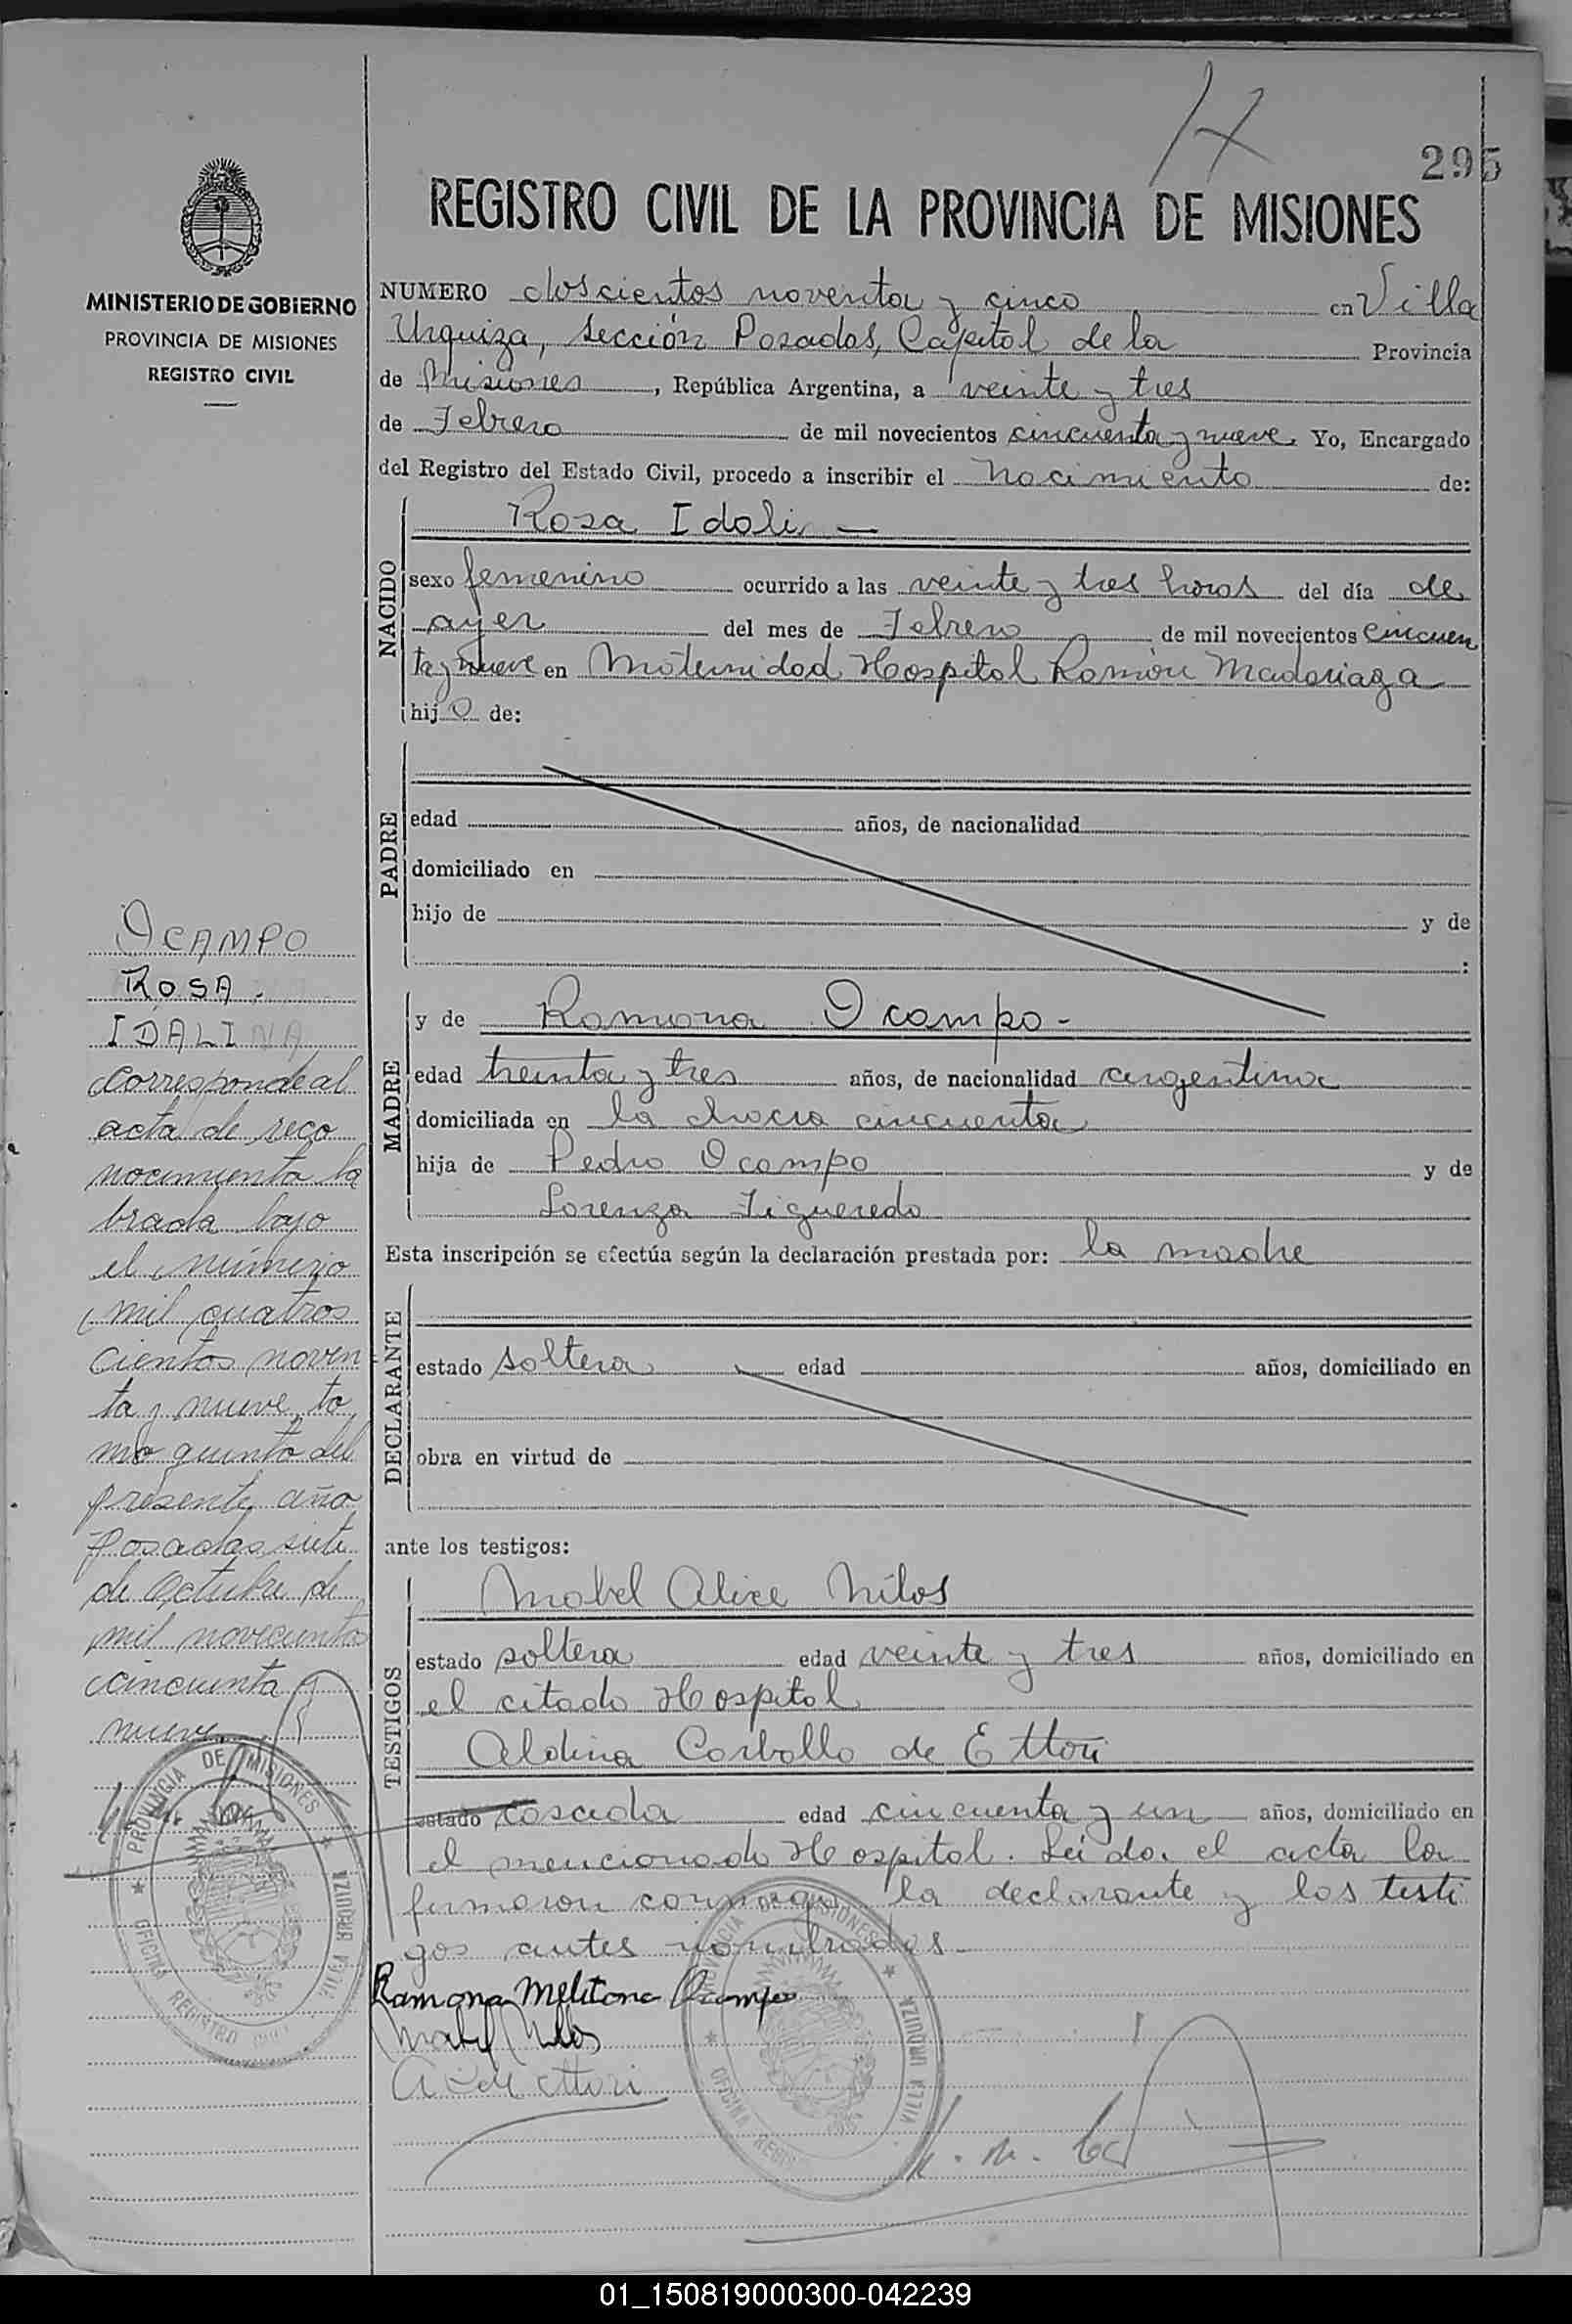 295
REGISTRO CIVIL DE LA PROVINCIA DE MISIONES
MINISTERIO DE GOBIERNO
PROVINCIA DE MISIONES
REGISTRO CIVIL
NUMERO doscientos noventa y cinco en Villa
Urquiza, sección Posadas, Capital de la Provincia
de Misiones, República Argentina, a veinte y tres
de Febrero de mil novecientos cincuenta y nueve. Yo, Encargado
del Registro del Estado Civil, procedo a inscribir el nacimiento de:
NACIDO
Rosa Idali
sexo femenino ocurrido a las veinte y tres horas del día de
ayer del mes de Febrero de mil novecientos cincuen
ta y nueve en Maternidad Hospital Ramón Madariaga
hij o de:
PADRE
edad años, de nacionalidad
domiciliado en
hijo de y de
:
MADRE
y de Ramona Ocampo -
edad treinta y tres años, de nacionalidad argentina
domiciliada en la chacra cincuenta
hija de Pedro Ocampo y de
Lorenza Figueredo
Esta inscripción se efectúa según la declaración prestada por: la madre
DECLARANTE
estado soltera edad años, domiciliado en
obra en virtud de
ante los testigos:
TESTIGOS
Mabel Alice Nilos
estado soltera edad veinte y tres años, domiciliado en
el citado Hospital
Aldina Carballo de Ettori
estado casada edad cincuenta y un años, domiciliado en
el mencionado Hospital. Leída el acta la
firmaron conmigo la declarante y los testi
gos antes nombrados
Ramona Melitona Ocampo
Mabel Nilos
OCAMPO
ROSA.
IDALINA
Corresponde al
acta de reco
nocimiento la
brada bajo
el número
mil cuatros
cientos noven
ta y nueve, to
mo quinto del
presente año
Posadas, siete
de Octubre de
mil novecientos
cincuenta y
nueve.
PROVINCIA DE MISIONES
OFICINA REGISTRO CIVIL
VILLA URQUIZA
PROVINCIA DE MISIONES
OFICINA
VILLA URQUIZA
01_150819000300-042239